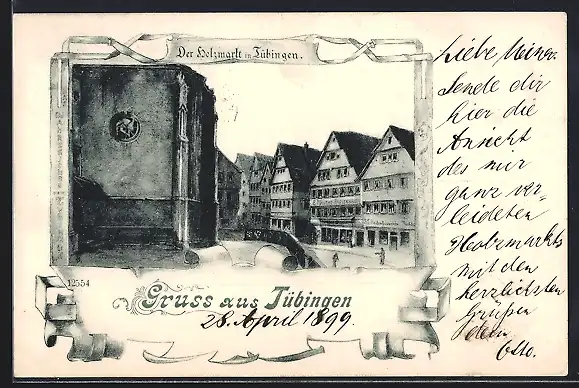 Der Holzmarkt in Tübingen.
12554
Gruss aus Tübingen
28. April 1899.
Liebe
Sende dir
hier die
Ansicht
des mir
ganz ver-
leideten
Holzmarkts
mit den
herzlichsten
Grüßen
dein
Otto.